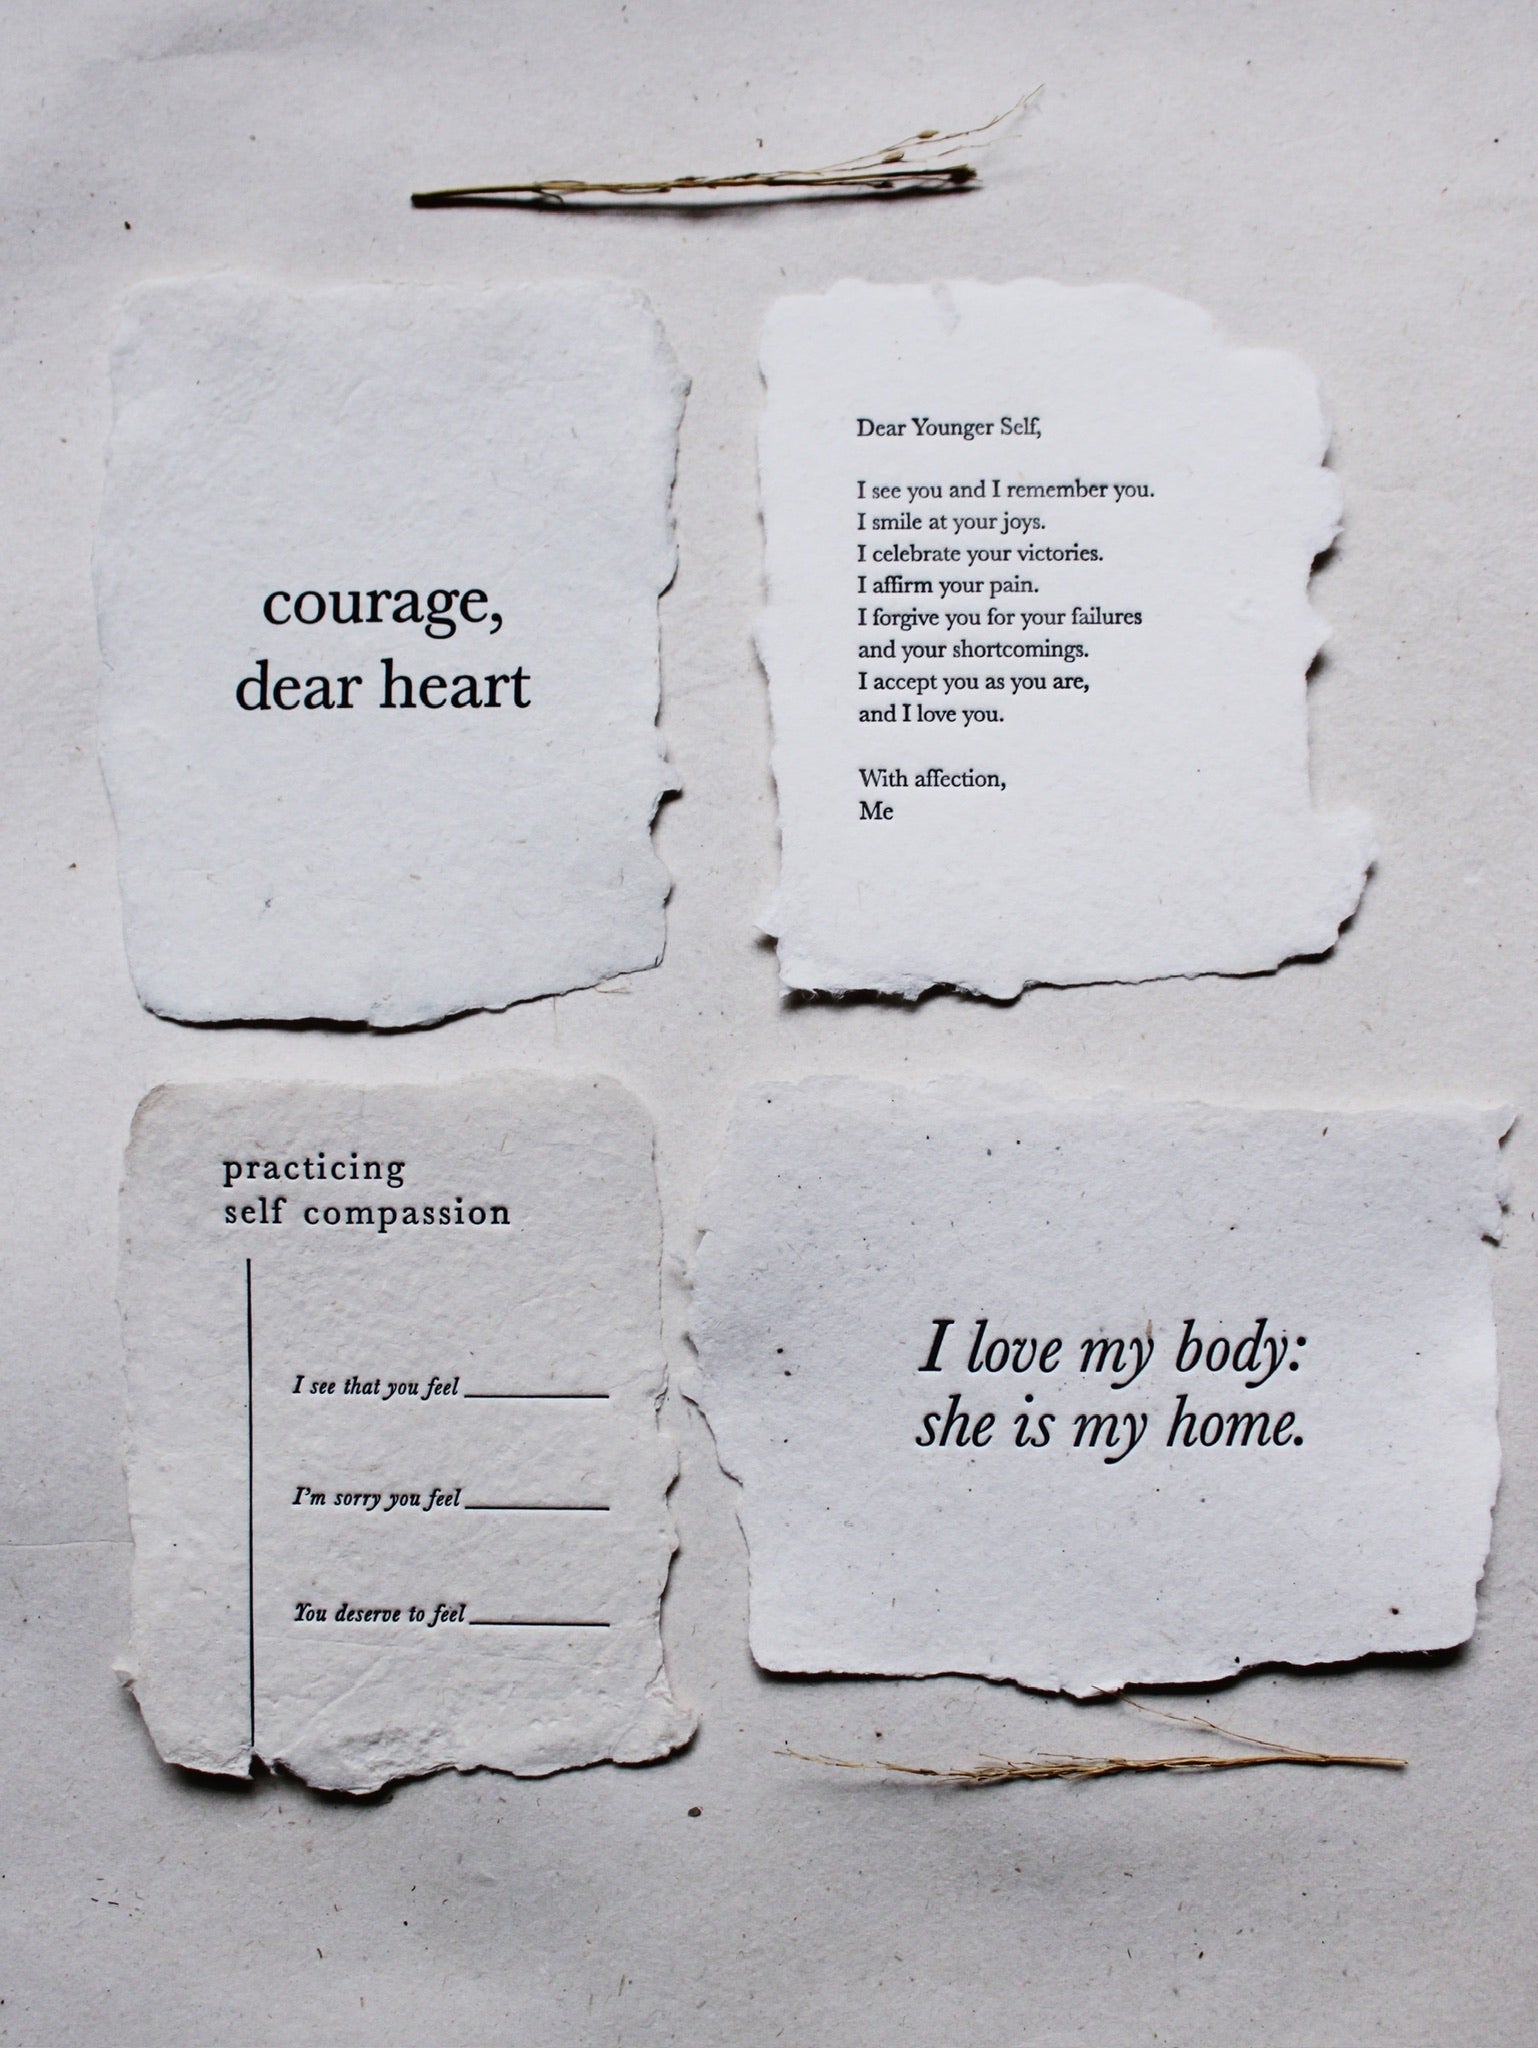 courage,
dear heart
Dear Younger Self,
I see you and I remember you.
I smile at your joys.
I celebrate your victories.
I affirm your pain.
I forgive you for your failures
and your shortcomings.
I accept you as you are,
and I love you.
With affection,
Me
practicing
self compassion
I see that you feel
I'm sorry you feel
You deserve to feel
I love my body:
she is my home.